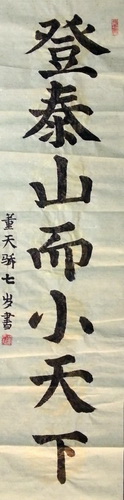 登泰山而小天下
董天骄七岁書